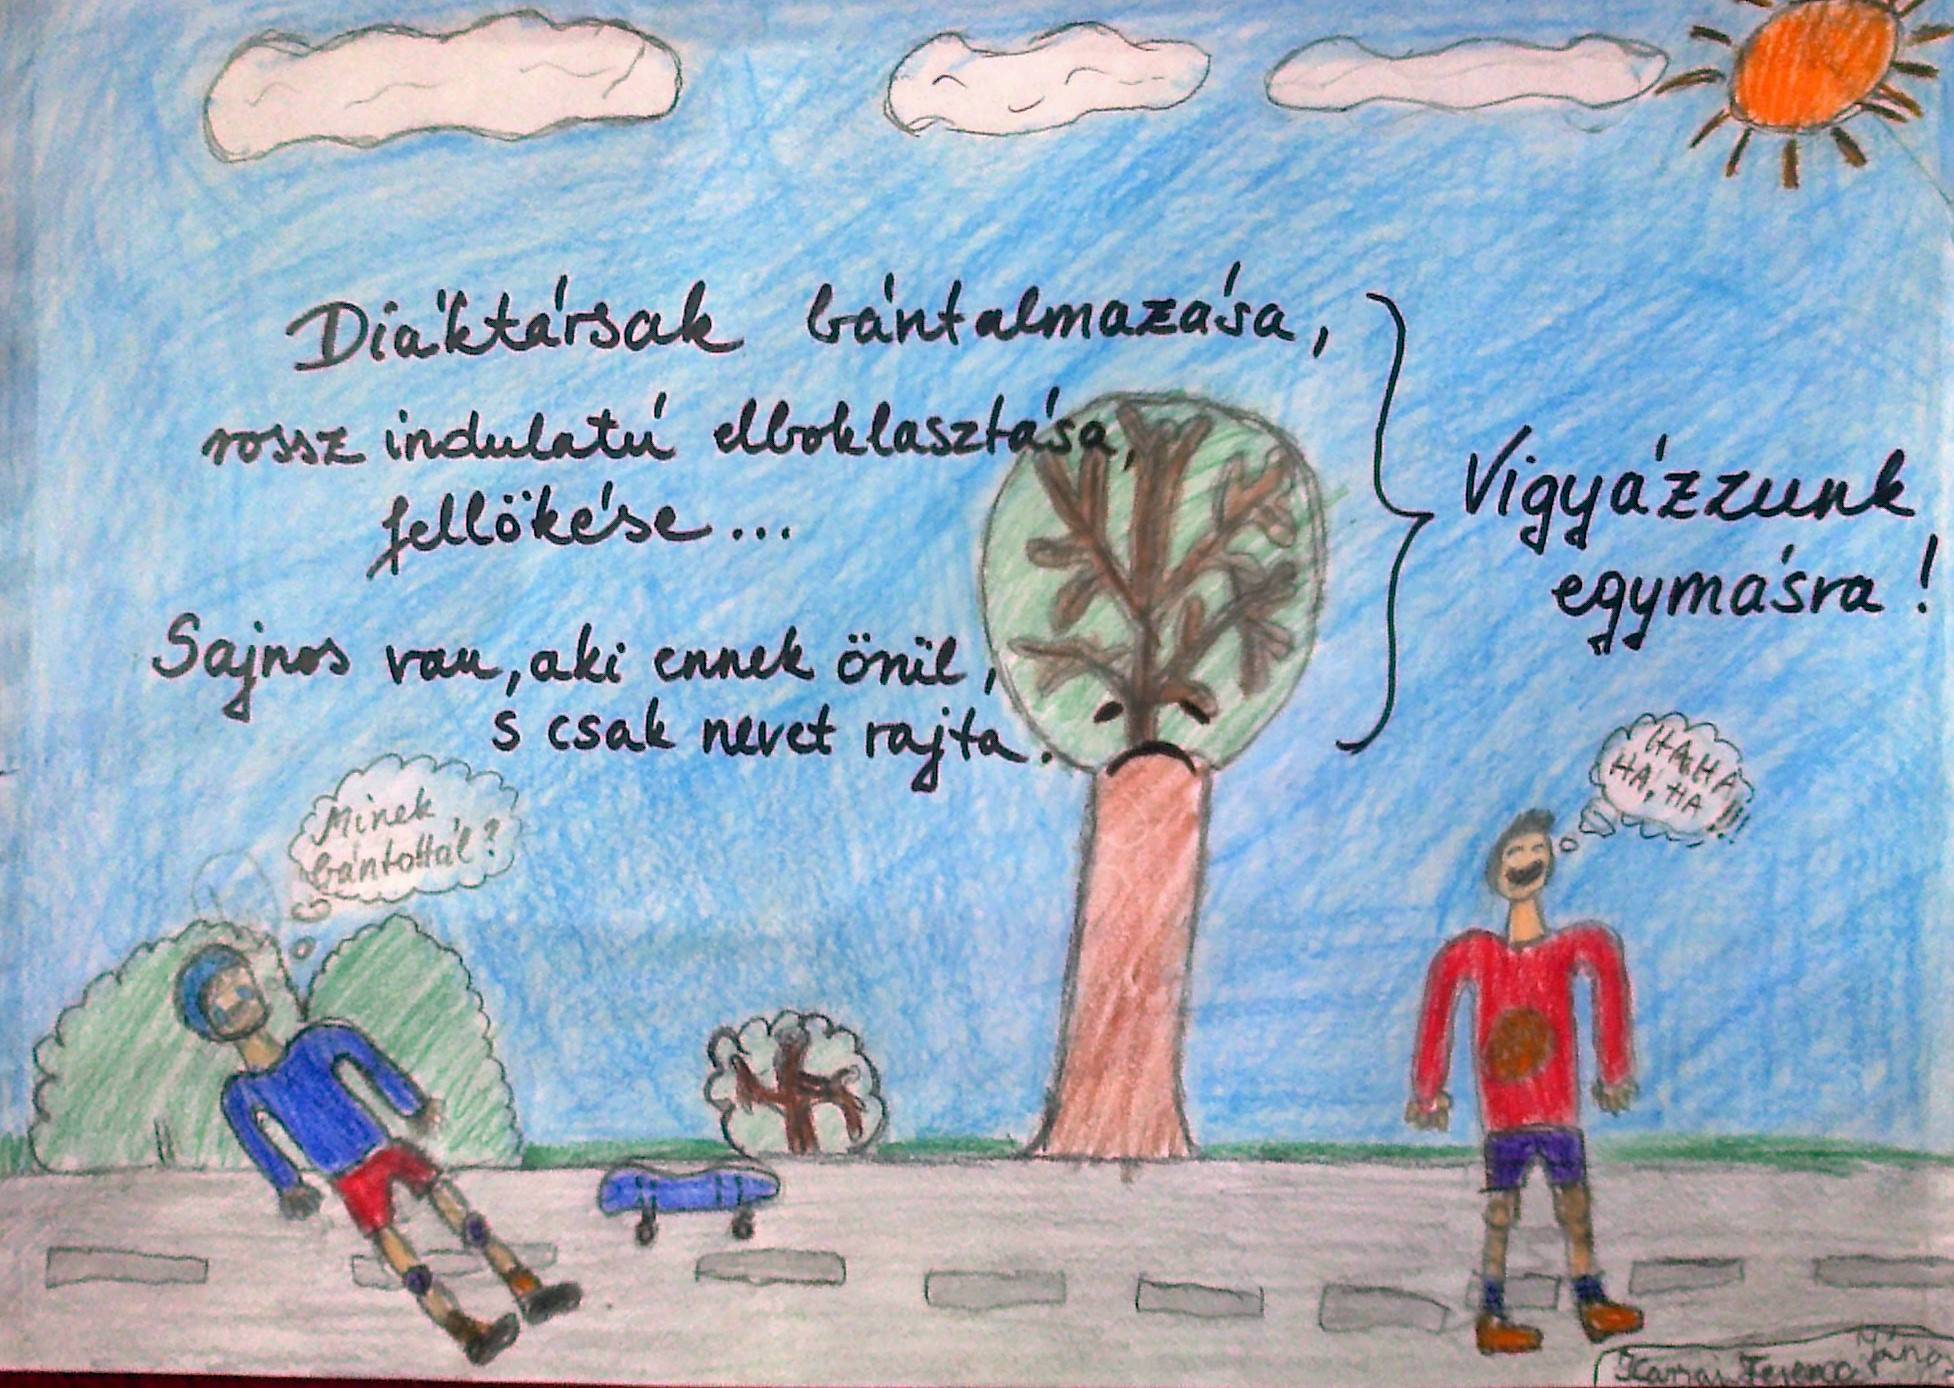 Diáktársak bántalmazása,
rossz indulatú elboklasztása,
fellökése...
Sajnos van, aki ennek önül,
s csak nevet rajta.
Vigyázzunk
egymásra!
Minek
bántottál?
HA,HA,
HA, HA
!!!
Ferenc